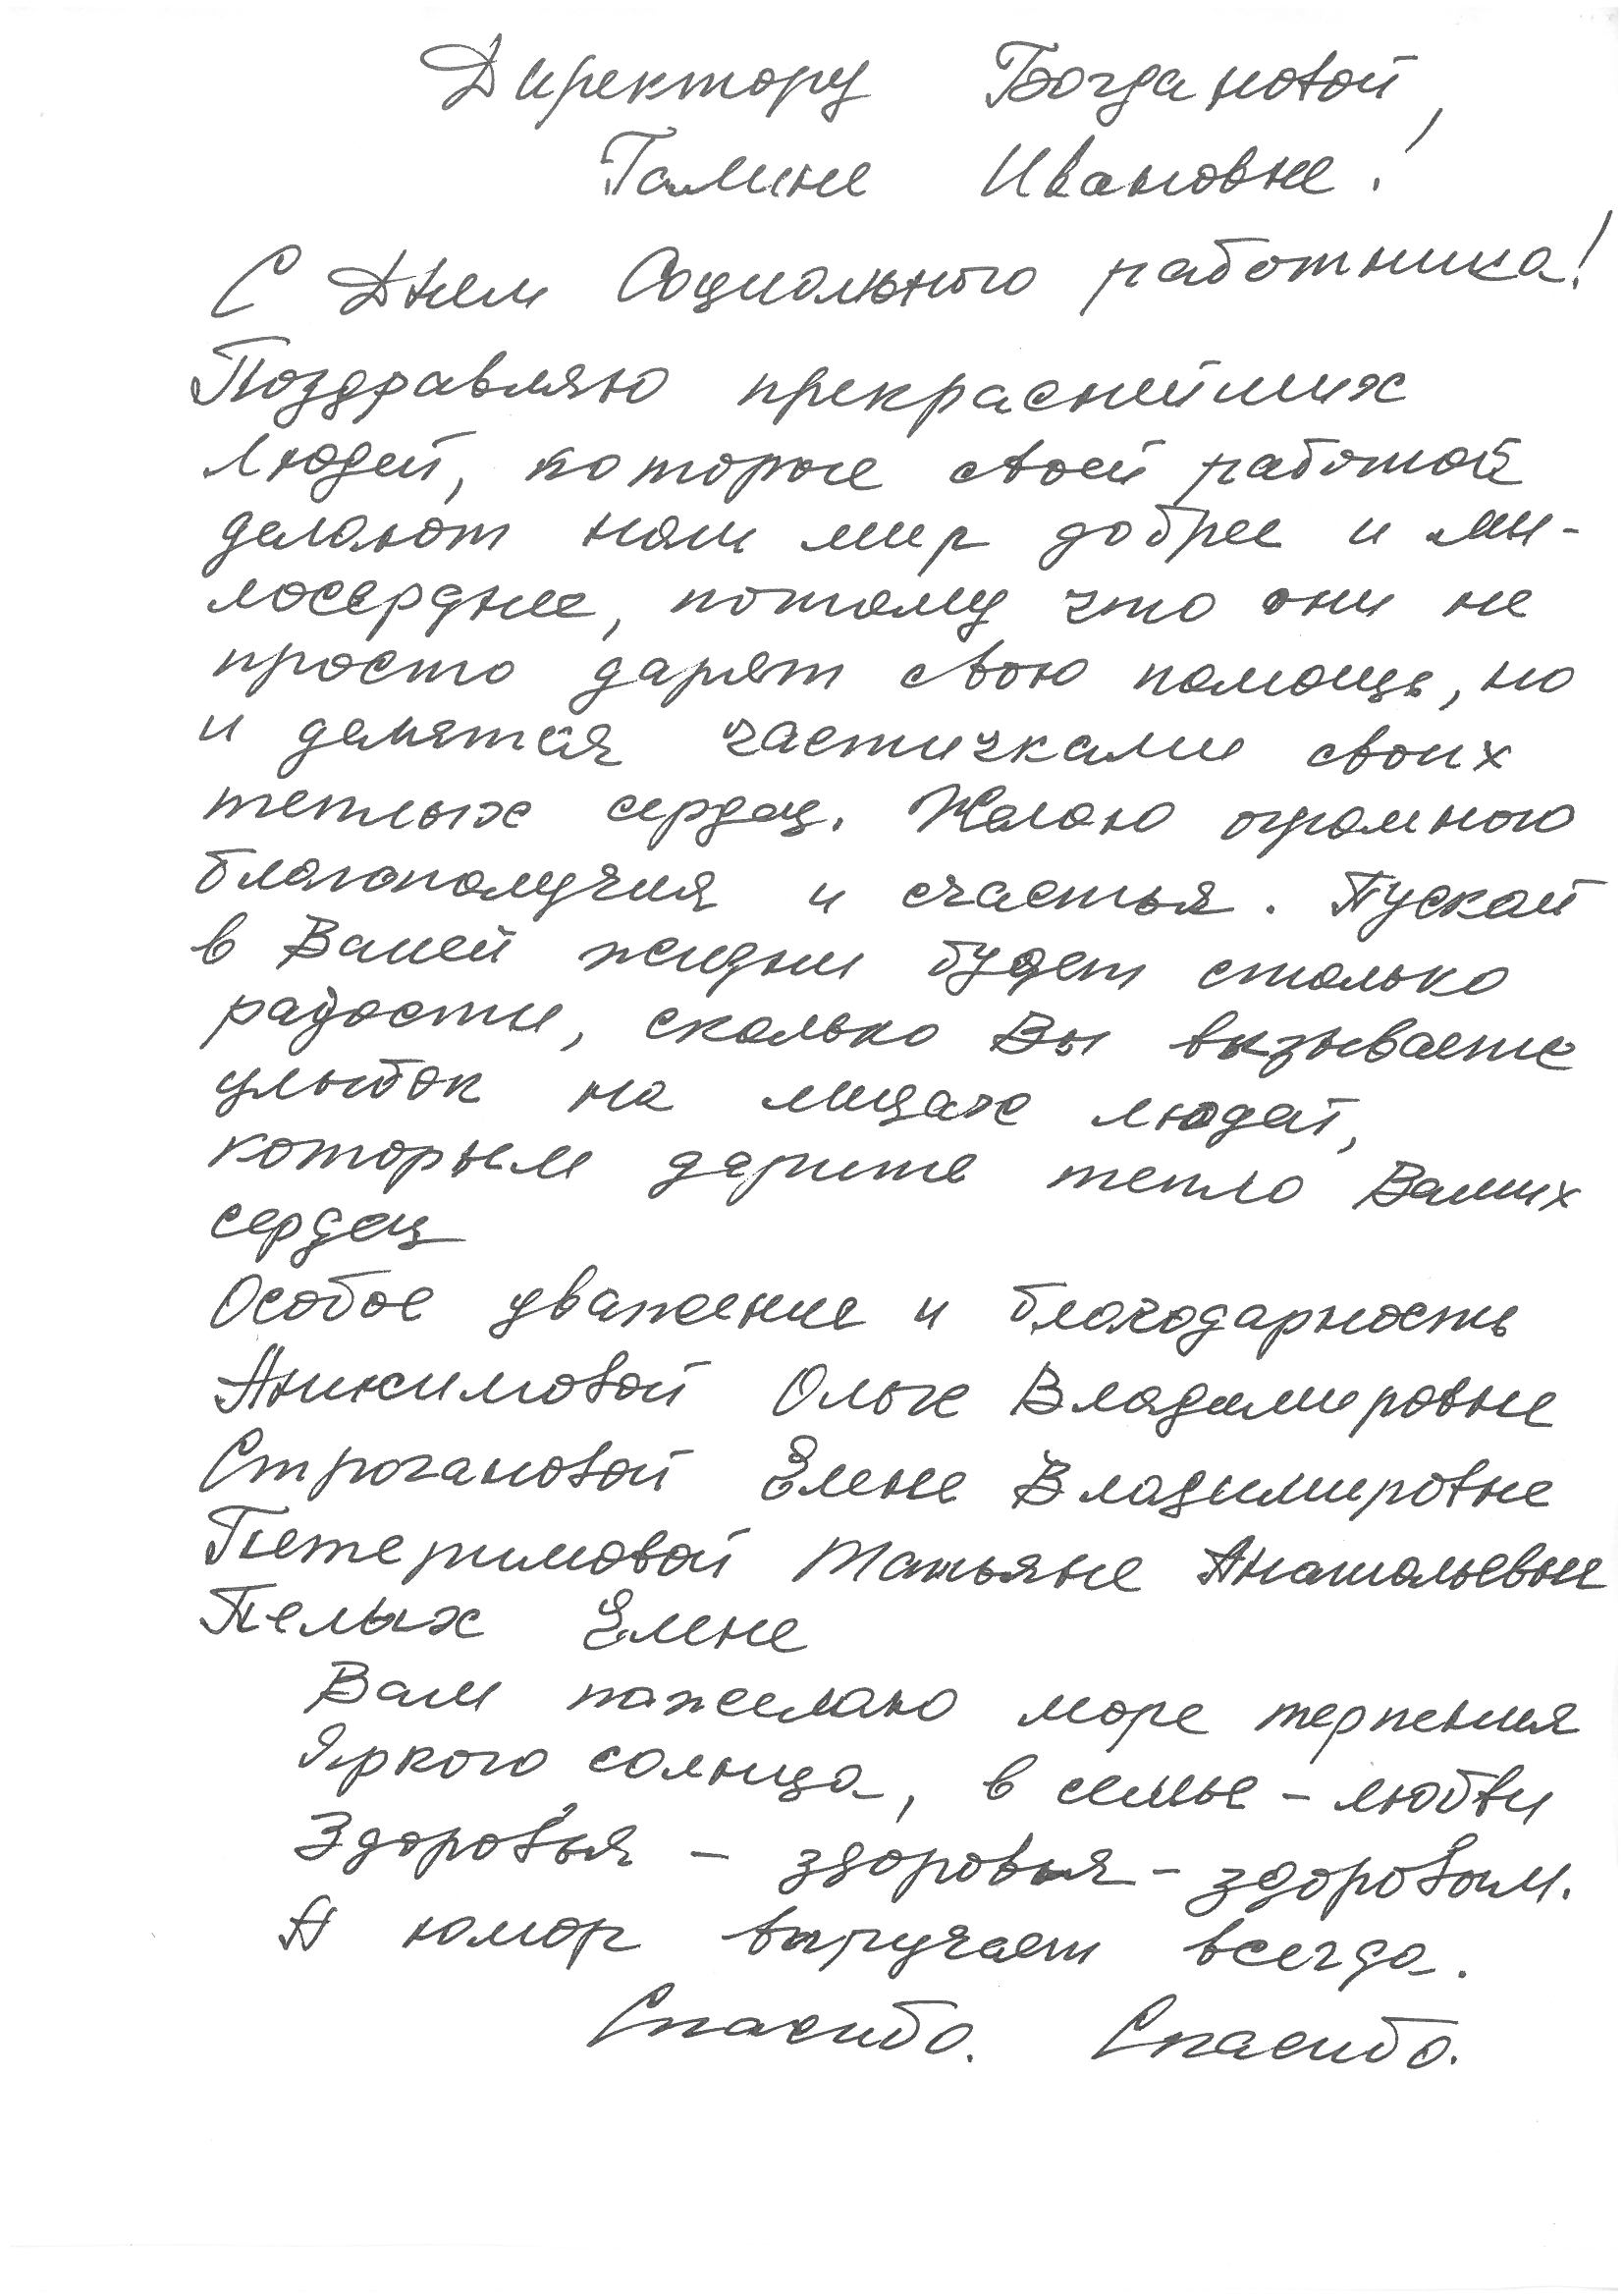 Директору Богдановой
Галине Ивановне!
С Днем Социального работника!
Поздравляю прекраснейших
людей, которые своей работой
делают наш мир добрее и ми-
лосерднее, потому что они не
просто дарят свою помощь, но
и делятся частичками своих
теплых сердец. Желаю огромного
благополучия и счастья. Пускай
в Вашей жизни будет столько
радости, сколько Вы вызываете
улыбок на лицах людей,
которым дарите тепло Ваших
сердец
Особое уважение и благодарность
Анисимовой Ольге Владимировне
Строгановой Елене Владимировне
Татьяне Анатольевне
Пелых Елене
Вам пожелаю море терпения
Яркого солнца, в семье - любви
Здоровья - здоровья - здоровьем.
А юмор выручает всегда.
Спасибо. Спасибо.